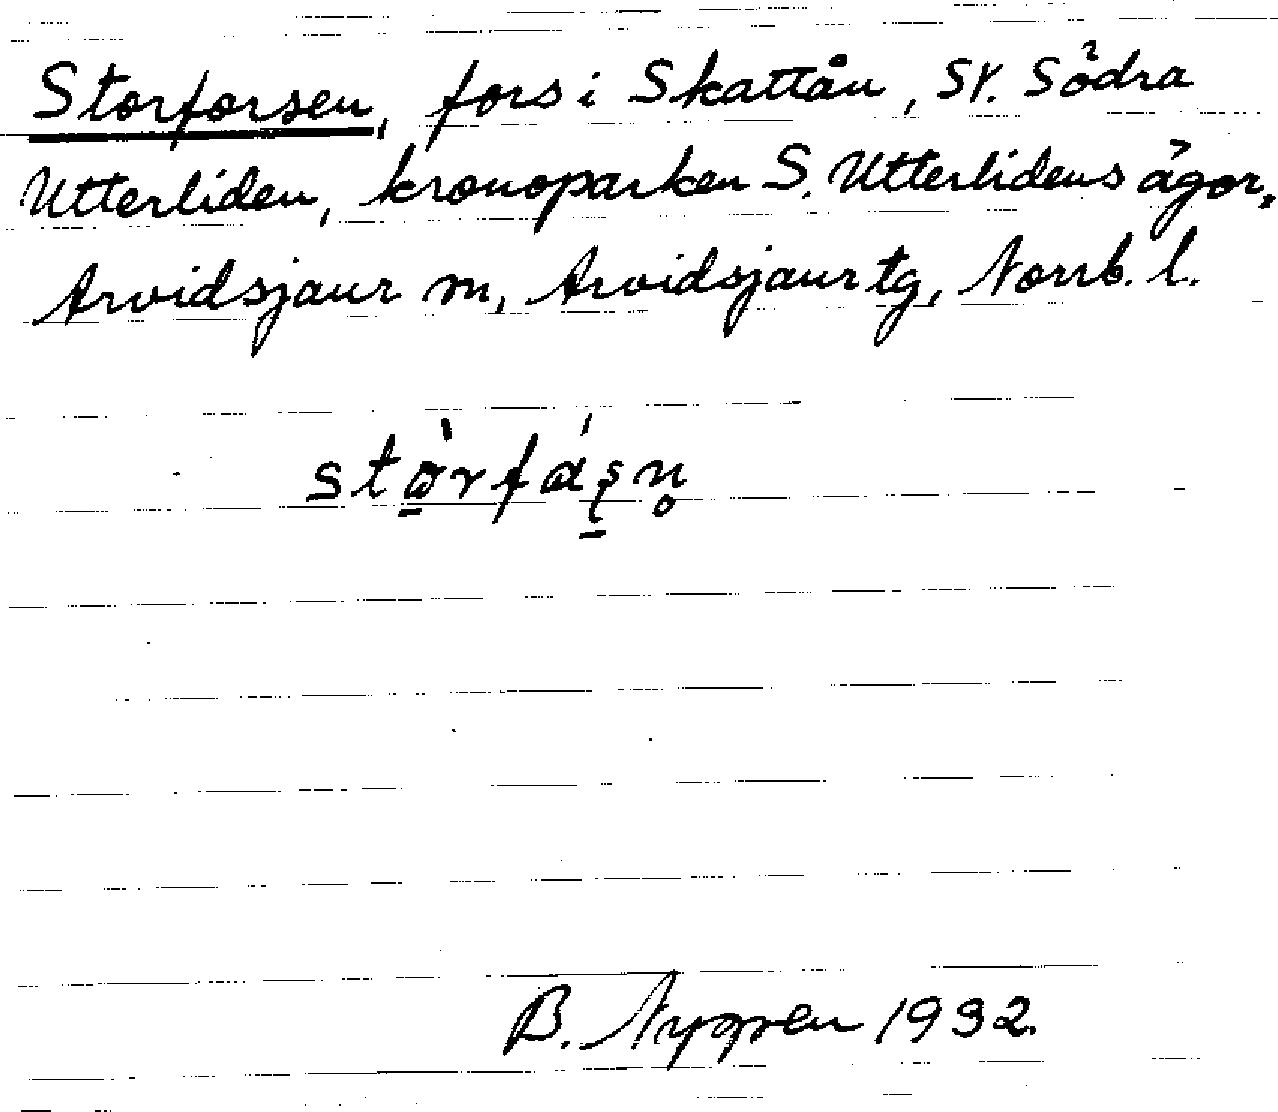 Storforsen, fors i Skattån, SV. Södra
Utterliden, kronoparken S. Utterlidens ägor,
Arvidsjaur sn, Arvidsjaur tg, Norrb. l.
B. Nygren 1932.